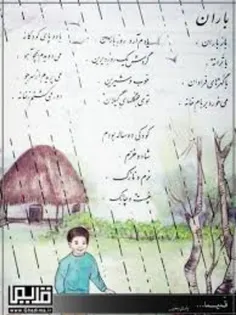 باران
باز باران
با ترانه
با گهرهای فراوان
می‌خورد بر بام خانه
یادم آرد روز باران
گردش یک روز دیرین
خوب و شیرین
توی جنگلهای گیلان
کودکی ده ساله بودم
شاد و خرم
نرم و نازک
چست و چابک
با دو پای کودکانه
می‌دویدم همچو آهو
می‌پریدم از سر جو
دور می‌گشتم ز خانه
قدیما...
www.Ghadima.ir